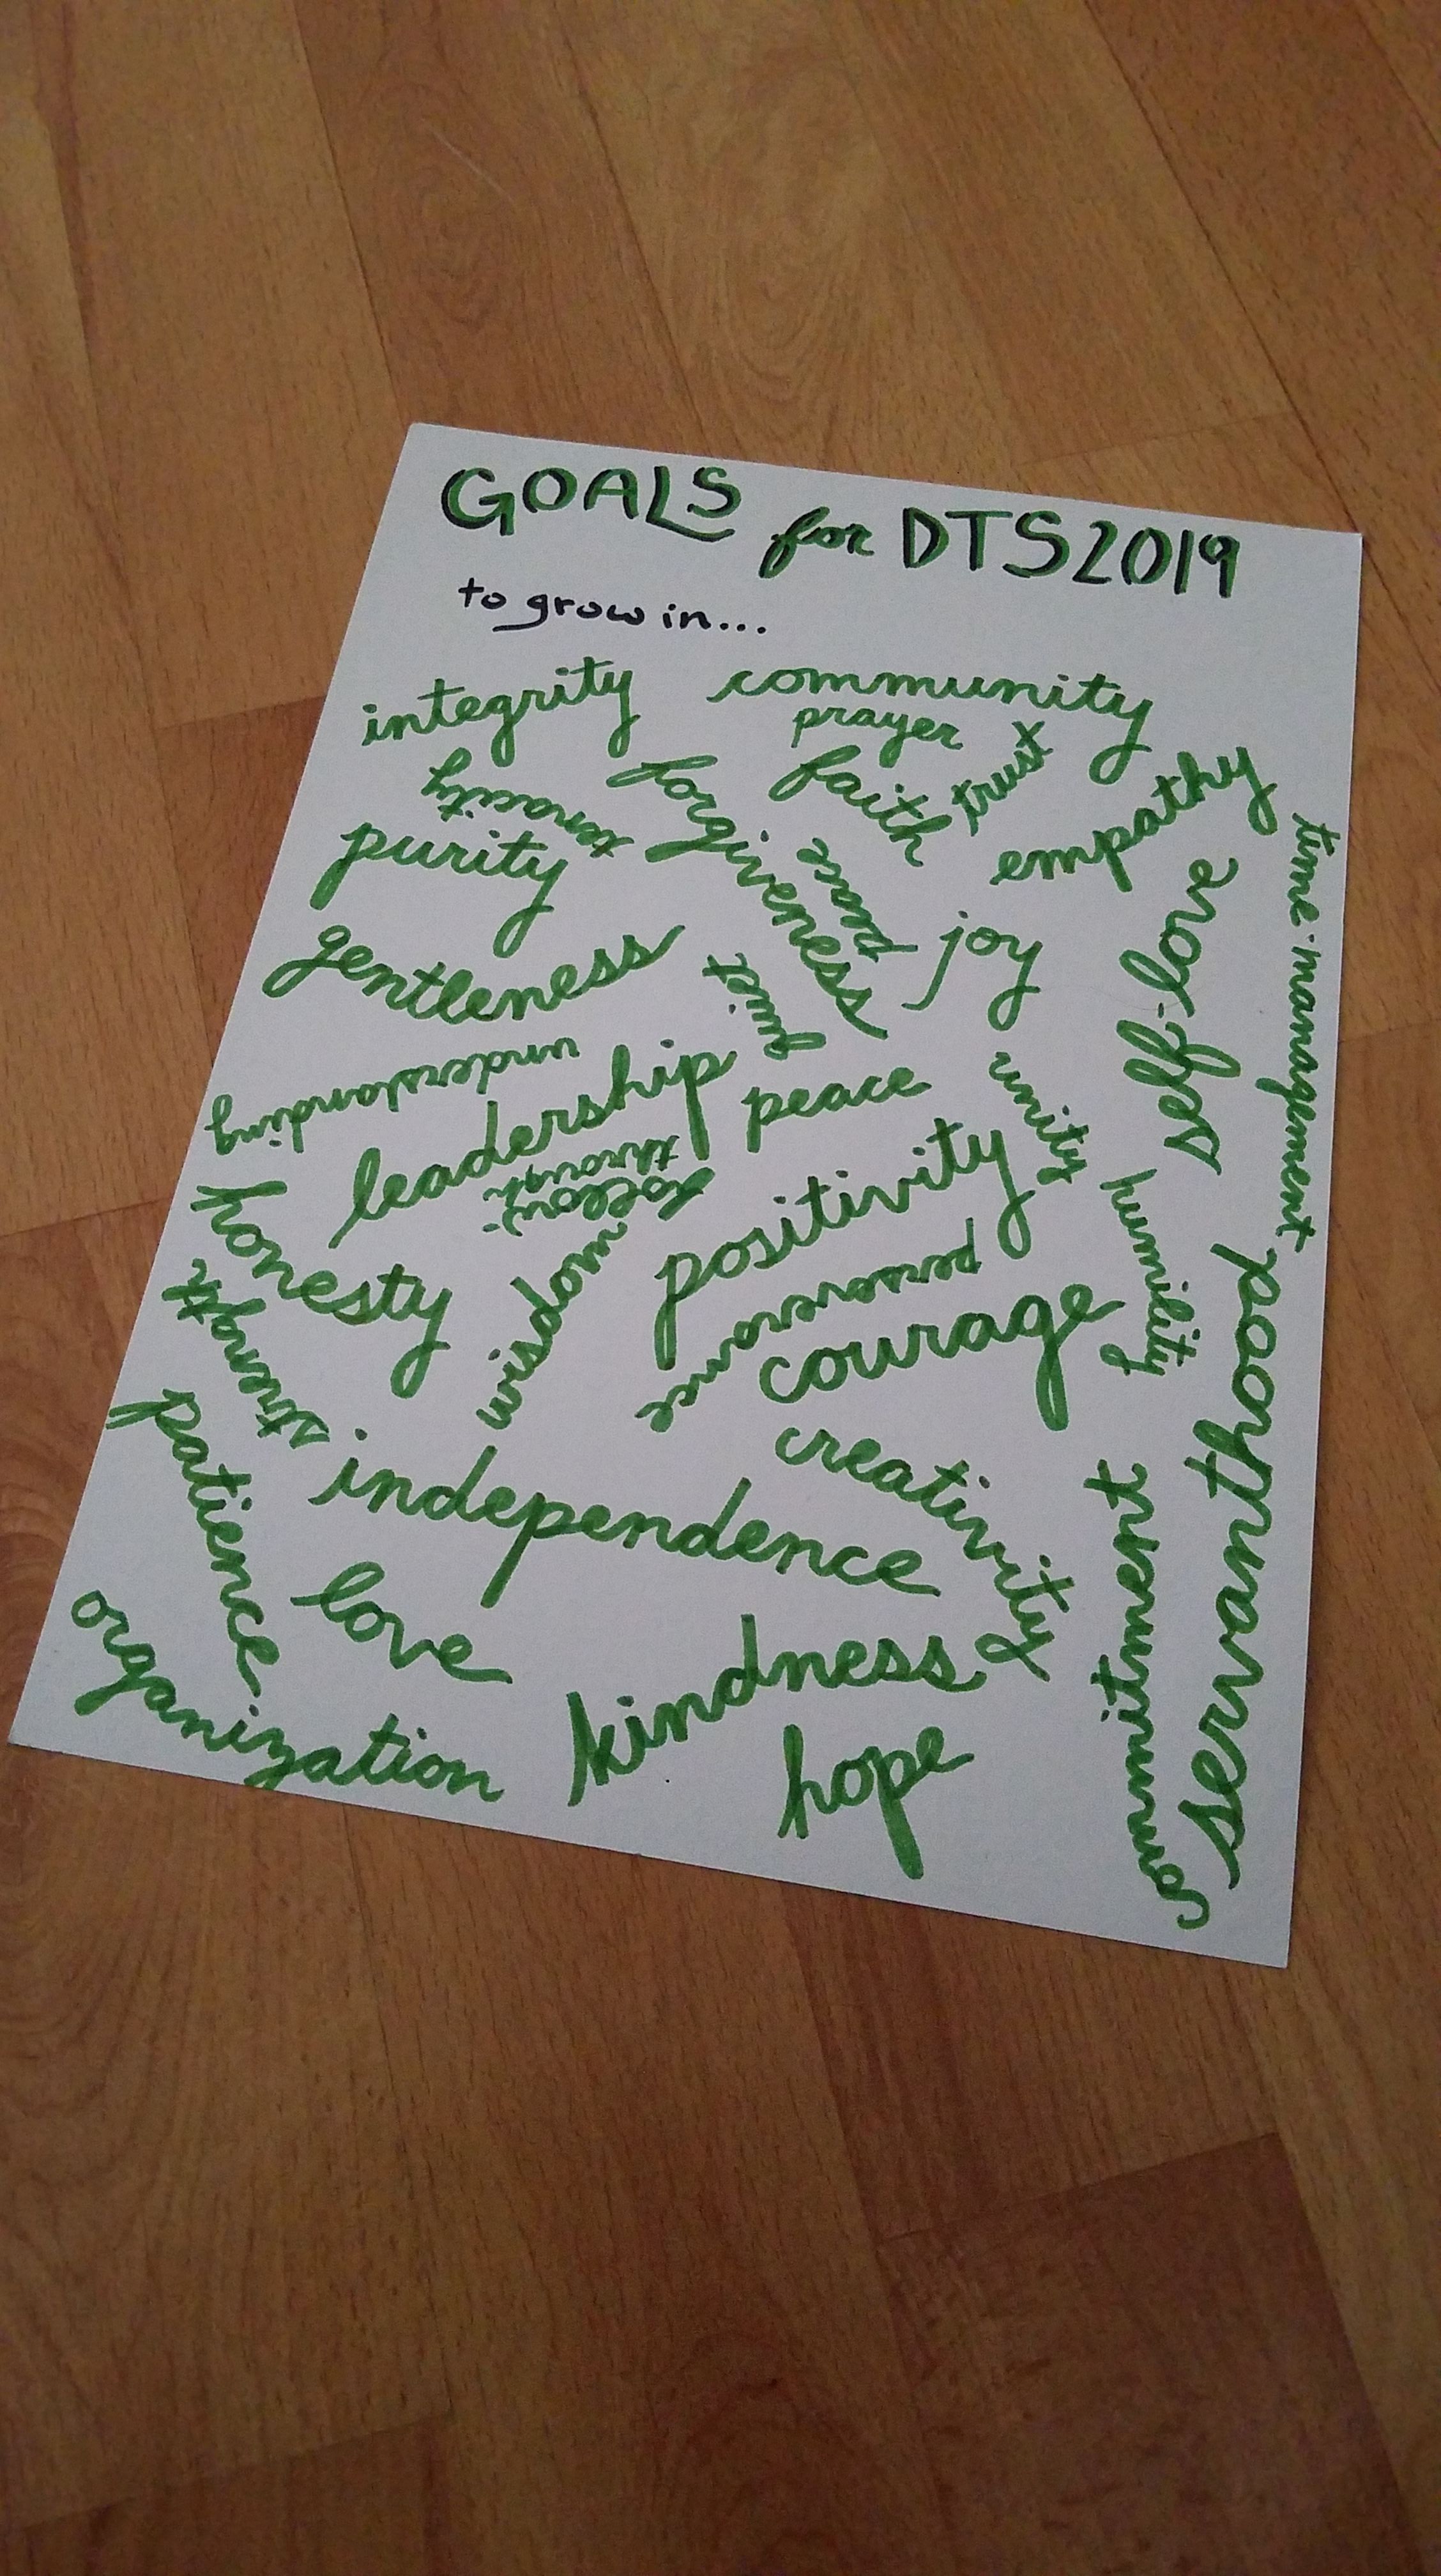 GOALS for DTS 2019
to grow in...
integrity
community
prayer
trust
tenacity
forgiveness
faith
empathy
purity
time-management
joy
self-love
gentleness
quiet
understanding
leadership
peace
unity
follow-through
humility
honesty
positivity
wisdom
perseverance
strength
courage
servanthood
patience
independence
creativity
commitment
love
organization
kindness
hope